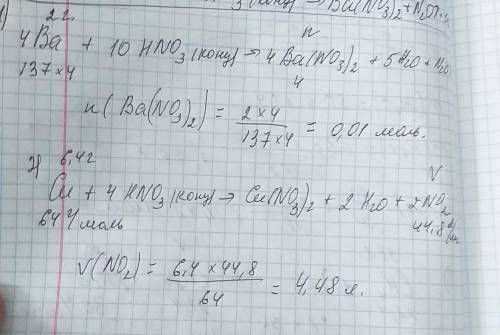 (конц) → Ba(NO3)2 + N2O↑
1) 2 г. n
4Ba + 10 HNO3 (конц) → 4 Ba(NO3)2 + 5H2O + N2O
137×4 4
n(Ba(NO3)2) = 2×4 / 137×4 = 0,01 моль.
2) 6,4 г V
Cu + 4 HNO3 (конц) → Cu(NO3)2 + 2 H2O + 2NO2
64 4 моль 44,8
V(NO2) = 6,4 × 44,8 / 64 = 4,48 л.